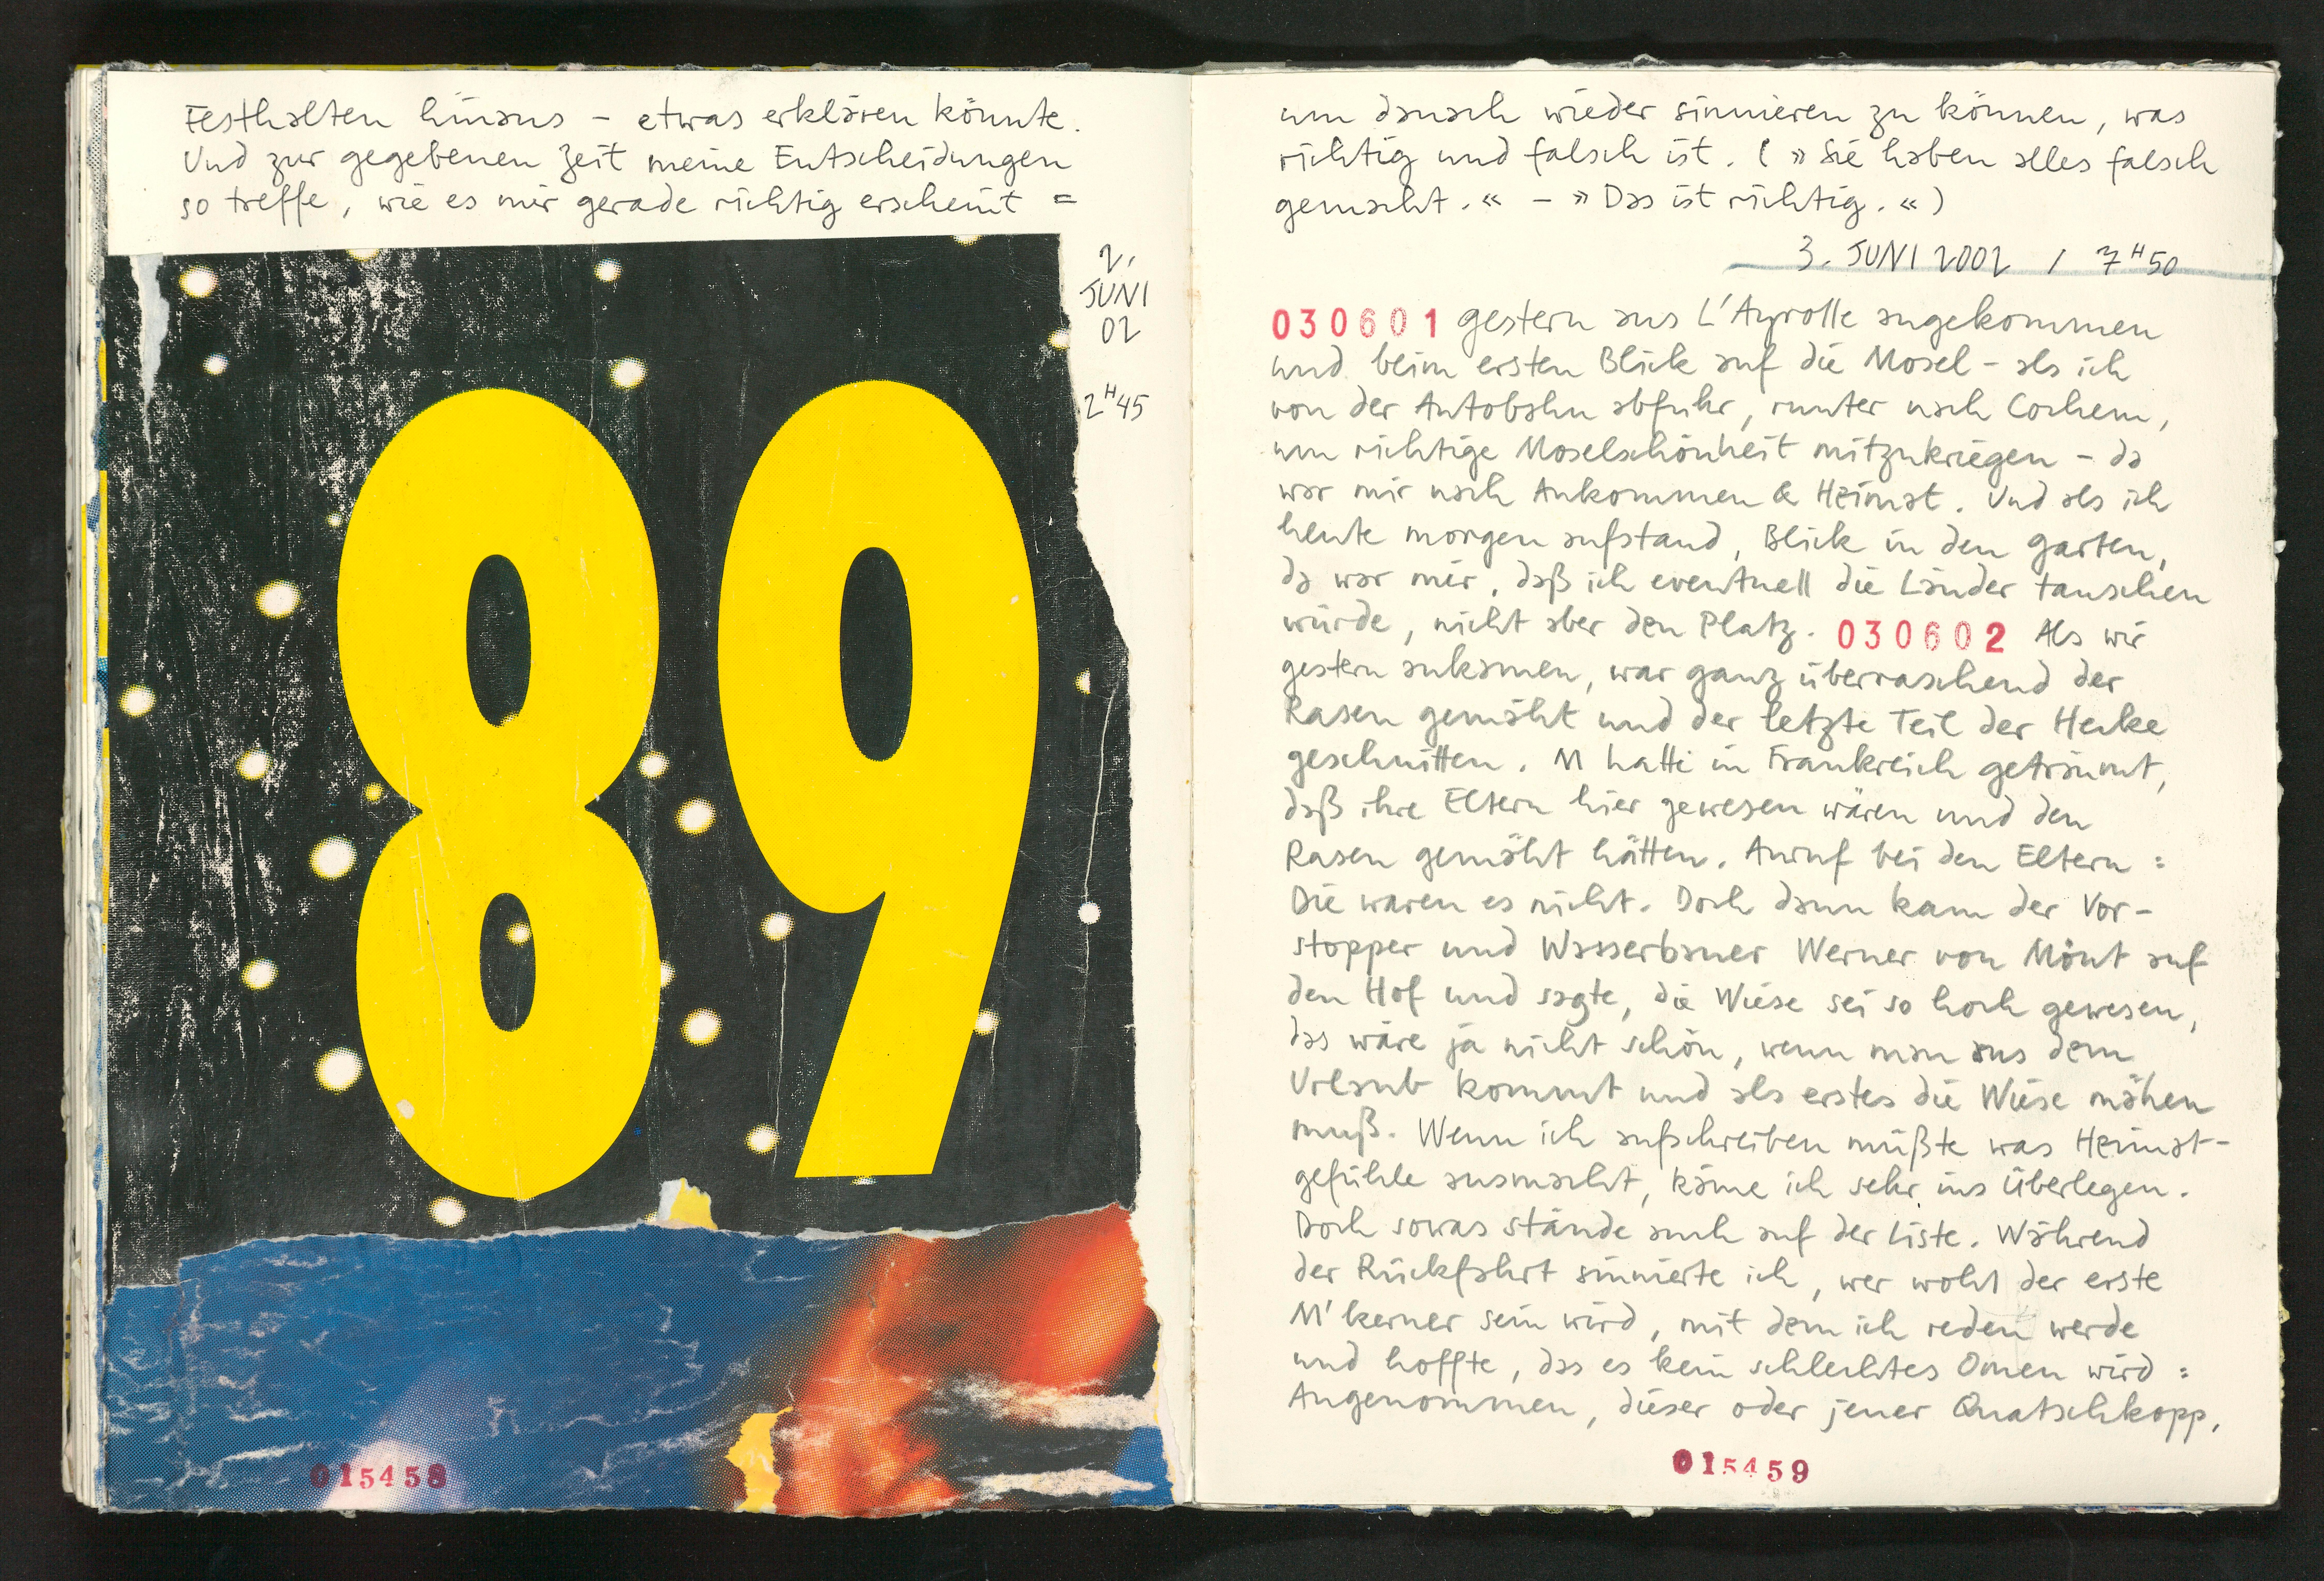 Festhalten hinaus – etwas erklären könnte.
Und zur gegebenen Zeit meine Entscheidungen
so treffe, wie es mir gerade richtig erscheint =
2.
JUNI
02
2H45
89
015458
um danach wieder sinnieren zu können, was
richtig und falsch ist. (»Sie haben alles falsch
gemacht.« – »Das ist richtig.«)
3. JUNI 2002 / 7H50
030601 gestern aus L'Ayrolle angekommen
und beim ersten Blick auf die Mosel – als ich
von der Autobahn abfuhr, runter nach Cochem,
um richtige Moselschönheit mitzukriegen – da
war mir nach Ankommen & Heimat. Und als ich
heute morgen aufstand, Blick in den Garten,
da war mir, daß ich eventuell die Länder tauschen
würde, nicht aber den Platz. 030602 Als wir
gestern ankamen, war ganz überraschend der
Rasen gemäht und der letzte Teil der Hecke
geschnitten. M hatte in Frankreich geträumt,
daß ihre Eltern hier gewesen wären und den
Rasen gemäht hätten. Anruf bei den Eltern:
Die waren es nicht. Doch dann kam der Vor-
stopper und Wasserbauer Werner von Mönt auf
den Hof und sagte, die Wiese sei so hoch gewesen,
das wäre ja nicht schön, wenn man aus dem
Urlaub kommt und als erstes die Wiese mähen
muß. Wenn ich aufschreiben müßte was Heimat-
gefühle ausmacht, käme ich sehr ins Überlegen.
Doch sowas stände auch auf der Liste. Während
der Rückfahrt sinnierte ich, wer wohl der erste
M'kerner sein wird, mit dem ich reden werde
und hoffte, das es kein schlechtes Omen wird:
Angenommen, dieser oder jener Quatschkopp,
015459